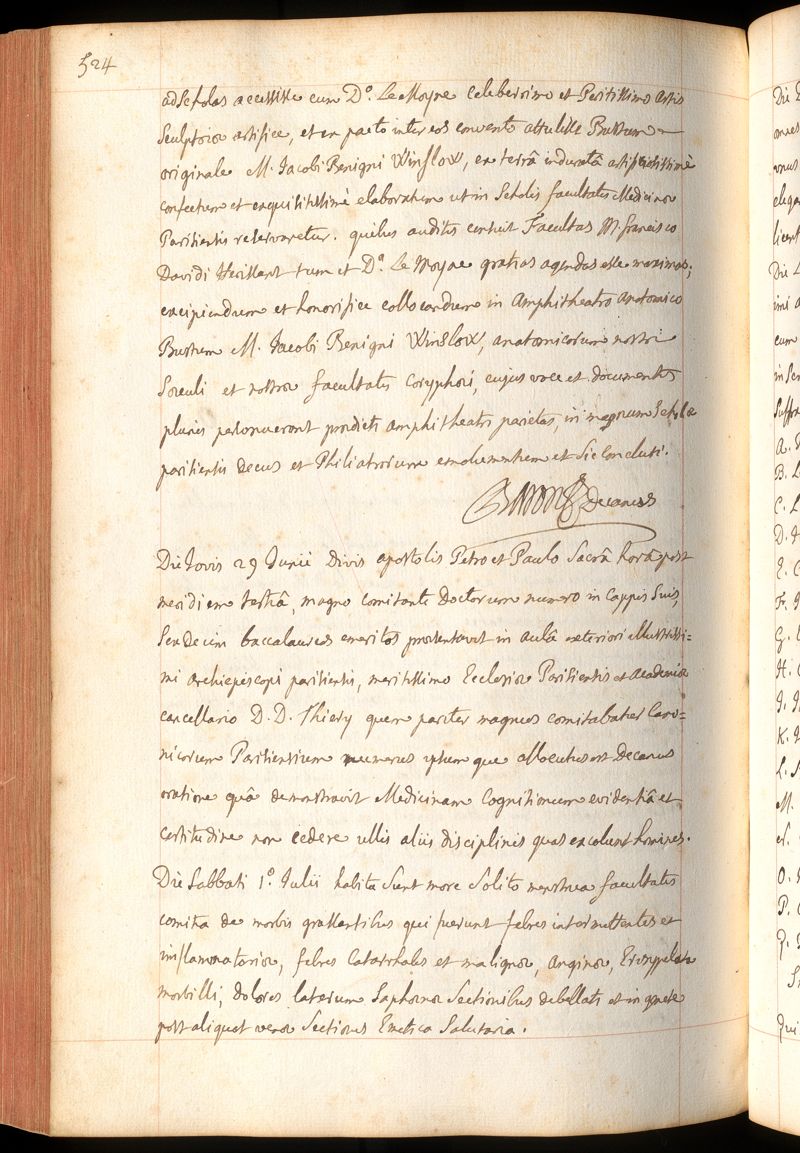 524
ad Scholas accessisse cum D°. Le Moyne celeberrimo et Peritissimo artis
Sculptoriæ artifice, et ex pacto inter eos convento attulisse Bustum
originale M. Jacobi Benigni Winslow, ex terrâ induratâ artificiosissimè
confectum et exquisitissimè elaboratum ut in Scholis facultatis Medicinæ
Parisiensis reservaretur. quibus auditis censuit Facultas M. francisco
Davidi Herissant tum et D°. Le Moyne gratias agendas esse maximas;
excipiendum et honorifice collocandum in Amphitheatro anatomico
Bustum M. Jacobi Benigni Winslow, anatomicorum nostri
Sæculi et nostræ facultatis Coryphæi, cujus voce et documentis
pluries personuerunt prædicti amphitheatri parietes, in magnum Scholæ
parisiensis Decus et Philiatrorum emolumentum et Sic Conclusi.
Decanus
Die Jovis 29 Junii Divis apostolis Petro et Paulo Sacrâ horâ post
meridiem tertiâ, magno comitante Doctorum numero in Cappis Suis,
Sexdecim baccalaureos emeritos præsentavit in aulâ exteriori illustrissi=
mi archiepiscopi parisiensis, meritissimo Ecclesiæ Parisiensis et academiæ
cancellario D. D. Thiery quem pariter magnus comitabatur Cano=
nicorum Parisiensium numerus ipsumque allocutus est Decanus
oratione quâ demonstravit Medicinam Cognitionum evidentiâ et
certitudine non cedere ullis aliis disciplinis quas excolunt homines.
Die Sabbati 1°. Julii habita Sunt more Solito menstrua facultatis
comitia de morbis grassantibus qui fuerunt febres intermittentes et
inflammatoriæ, febres Catarrhales et malignæ, anginæ, Erysypelata
morbilli, dolores laterum Saphenæ Sectionibus debellati et in genere
post aliquot venæ Sectiones Emetica Salutaria.
Die
A.
B. L
C. L
D.
E.
F.
G.
H.
I.
K.
L.
M.
N.
O.
P.
Q.